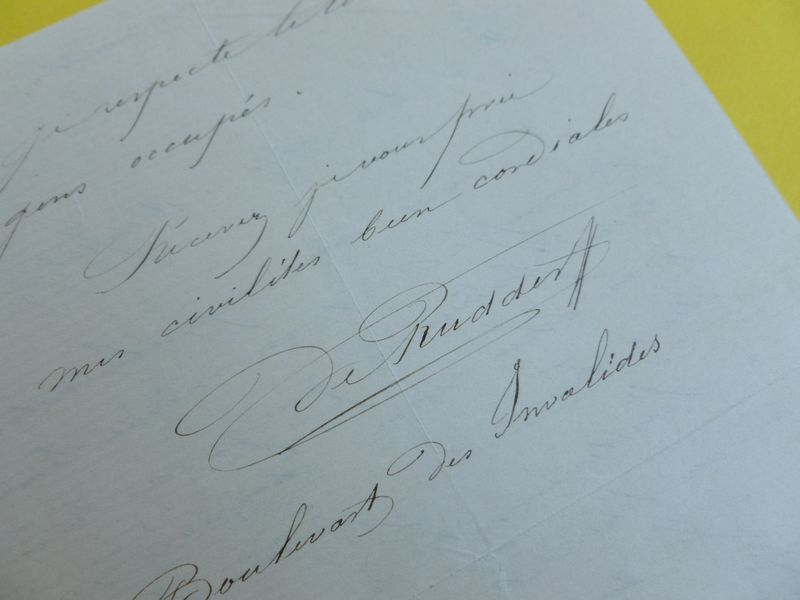 je respecte le
gens occupés.
Recevez je vous prie
mes civilités bien cordiales
De Rudder
Boulevart des Invalides